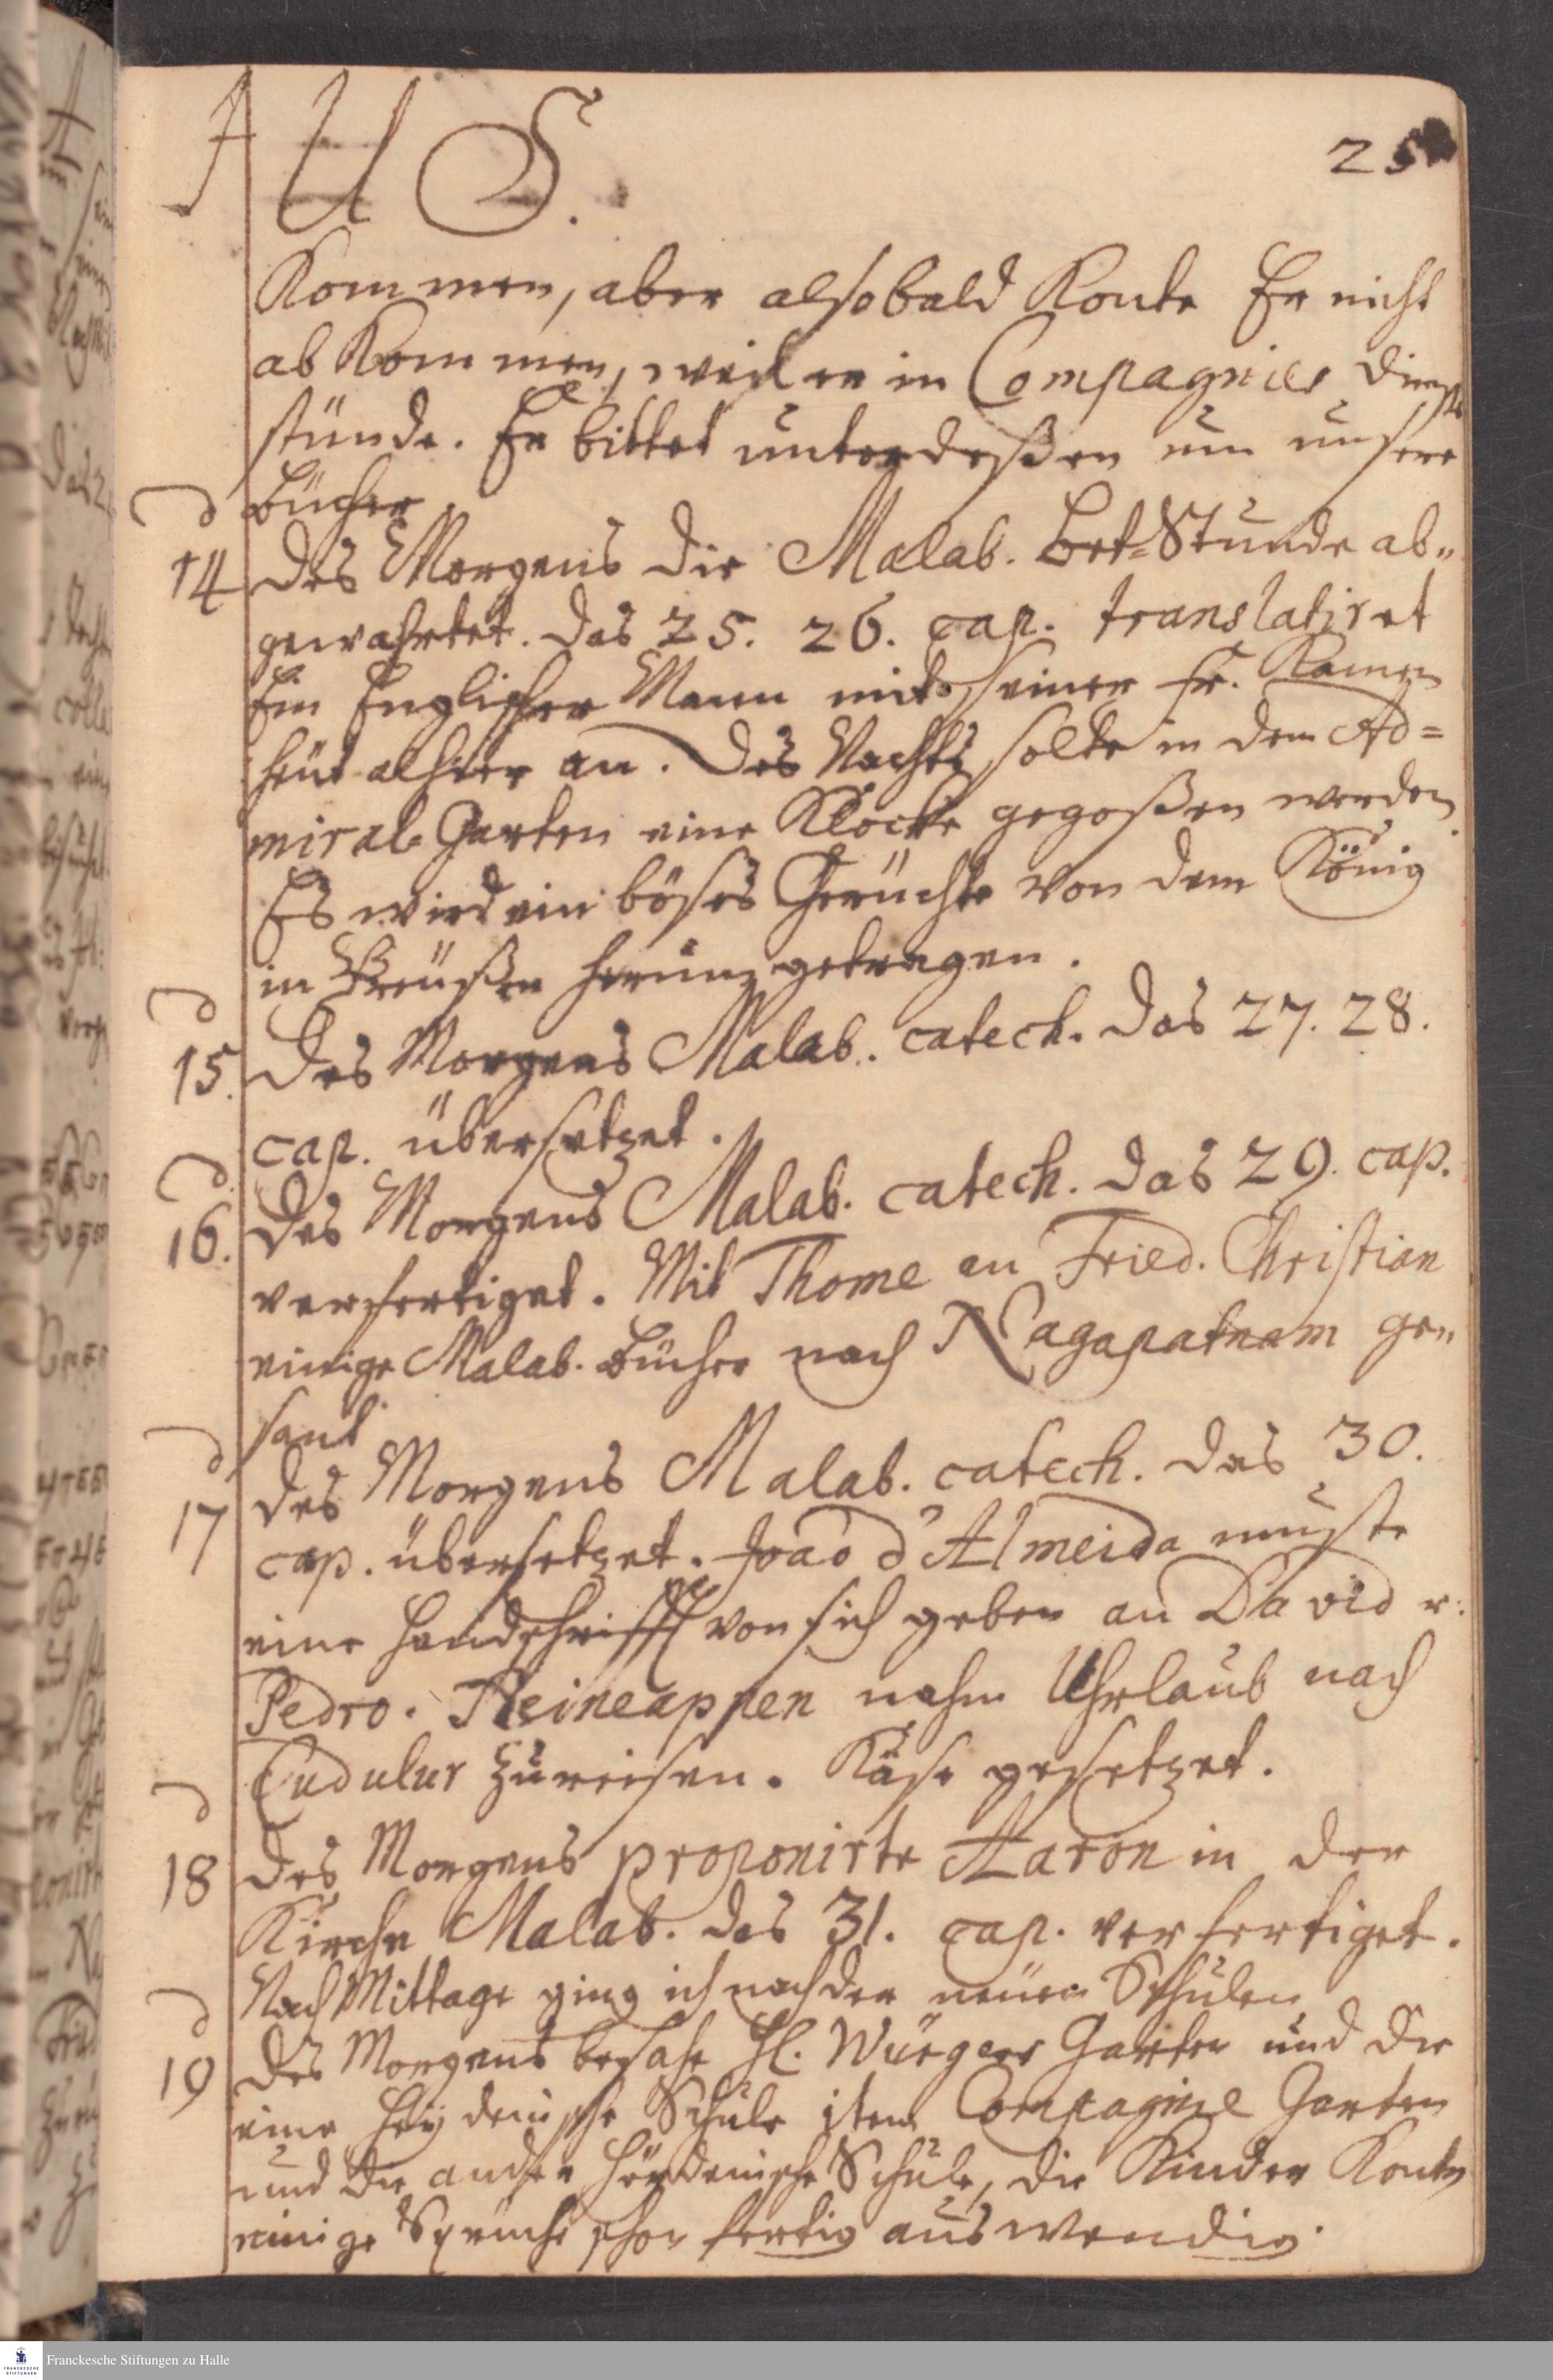 A U S. 25
Kommen, aber alsobald Konte Er nicht
ab Kommen, weil er in Compagnies dienste
stünde. Er bittet unterdeßen um unsere
bücher
d 14 Des Morgens die Malab. Bet-Stunde ab„
gewahrtet. Das 25. 26. cap. translatiret
Ein Englischer Mann mit seiner Fr. Kamen
heut alhier an. Des Nachts solte in dem Ad=
miral Garten eine Klocke gegoßen werden.
Es wird ein böses Gerüchte von dem König
in Preüßen herum getragen.
d 15. Des Morgens Malab. catech. Das 27. 28.
cap. übersetzet.
d. 16. Des Morgens Malab. catech. Das 29. cap.
verfertiget. Mit Thome an Fried. Christian
einige Malab. bücher nach Nagapatnam ge„
sant
d 17 Des Morgens Malab. catech. Das 30.
cap. übersetzet. Joaõ d'Almeida muste
eine Handschrifft von sich geben an David u.
Pedro. Reineappen nahm Uhrlaub nach
Cudulur Zu reisen. Käse gesetzet.
d 18 Des Morgens proponirte Aaron in der
Kirche Malab. Das 31. cap. verfertiget.
Nach Mittage ging ich nach der neüen Schulen
d 19 Des Morgens besahe H. Würgers Garten und die
eine Heydenische Schule item Compagnie Garten
und die andere Heydenische Schule, die Kinder Konten
einige Sprüche schon fertig auswendig.
Franckesche Stiftungen zu Halle
FRANCKESCHE STIFTUNGEN